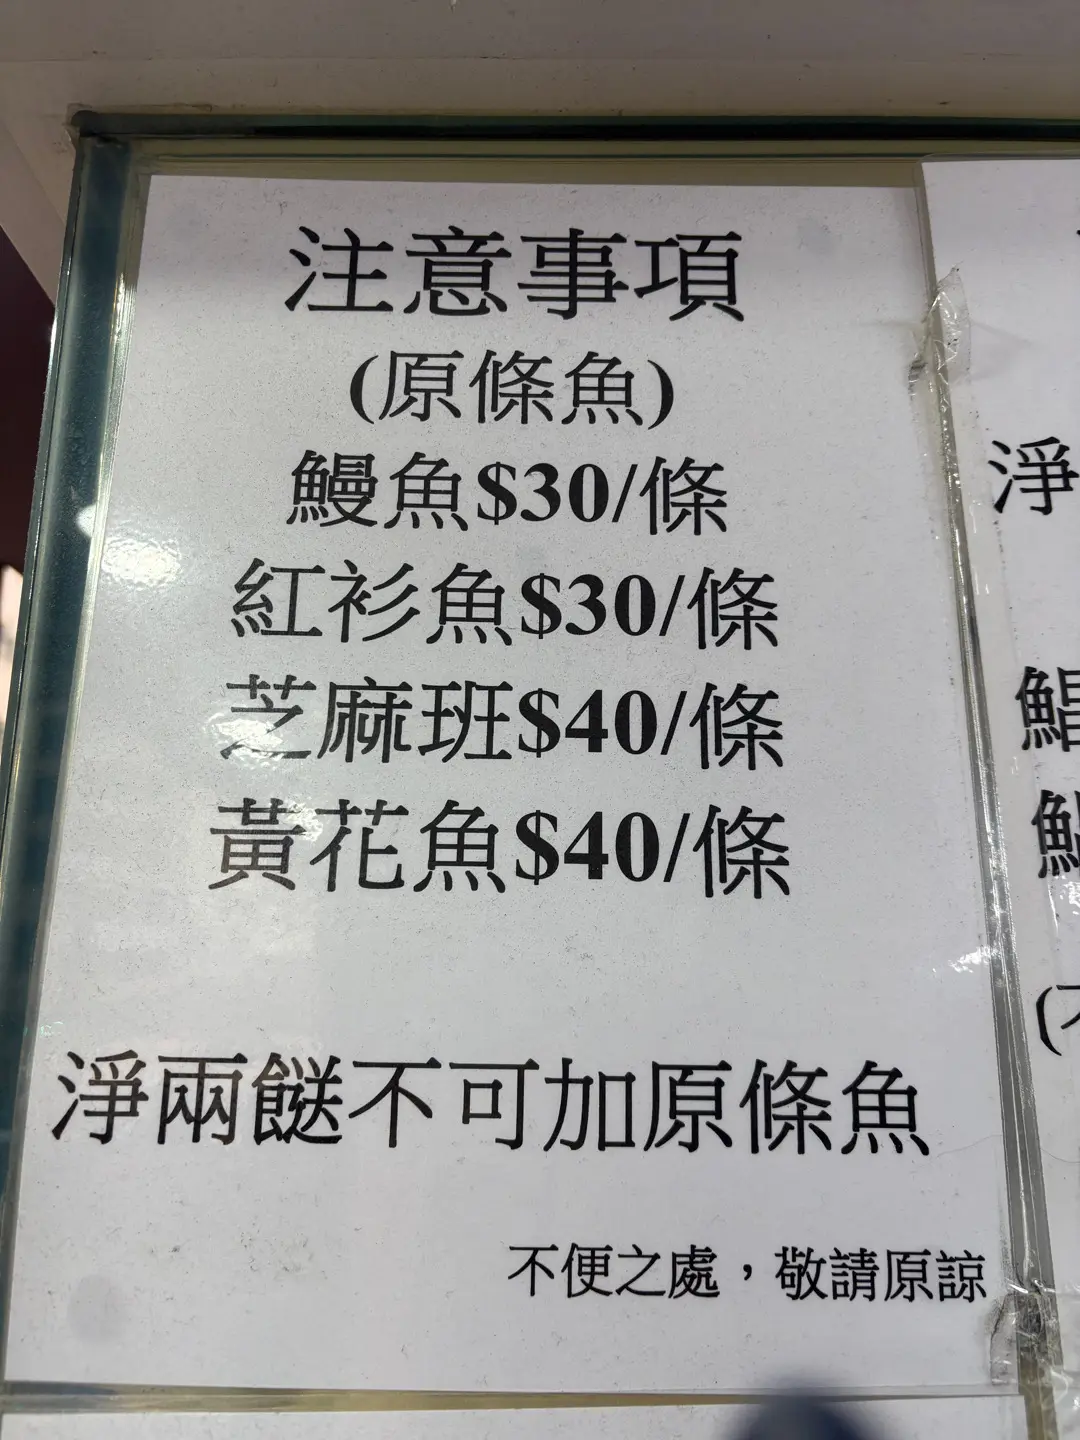 注意事項
(原條魚)
鰻魚$30/條
紅衫魚$30/條
芝麻班$40/條
黃花魚$40/條
淨兩餸不可加原條魚
不便之處,敬請原諒
淨
鯧
(不